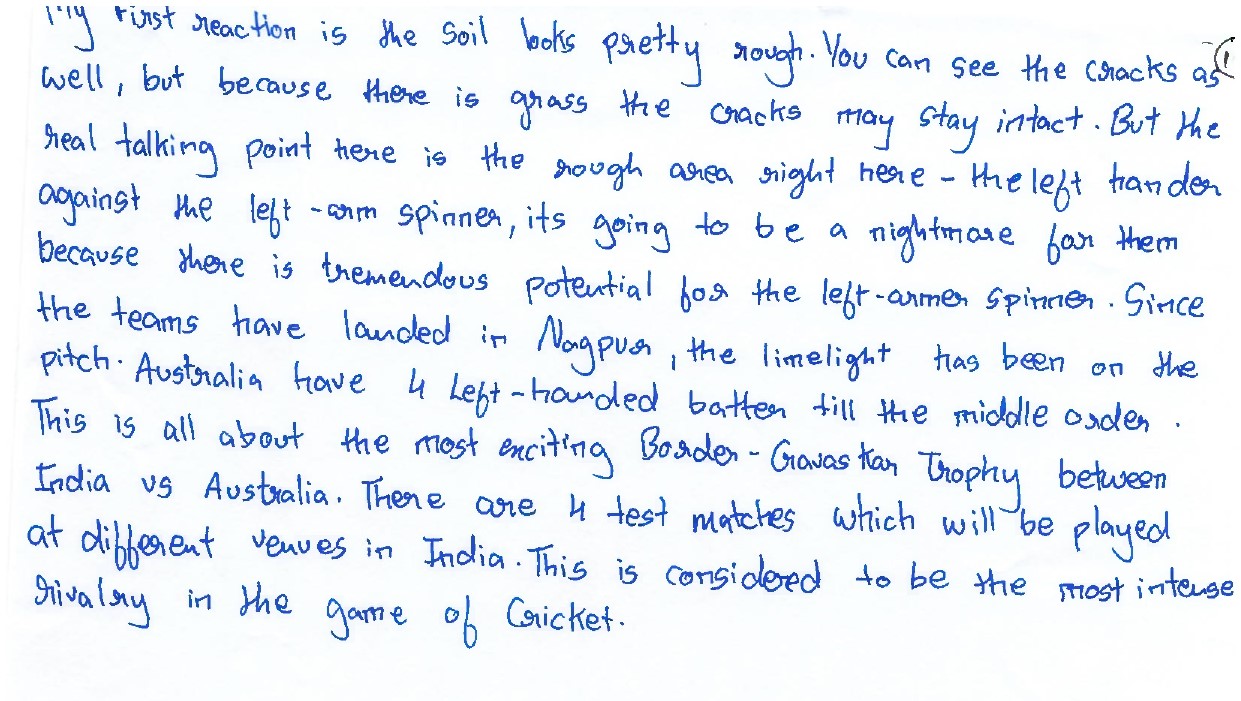 My first reaction is the Soil looks pretty rough. You can see the cracks as
well, but because there is grass the cracks may stay intact. But the
real talking point here is the rough area right here - the left hander
against the left-arm spinner, its going to be a nightmare for them
because there is tremendous potential for the left-armer spinner. Since
the teams have landed in Nagpur, the limelight has been on the
pitch. Australia have 4 Left-handed batter till the middle order.
This is all about the most exciting Border-Gavaskar Trophy between
India vs Australia. There are 4 test matches which will be played
at different venues in India. This is considered to be the most intense
rivalry in the game of Cricket.